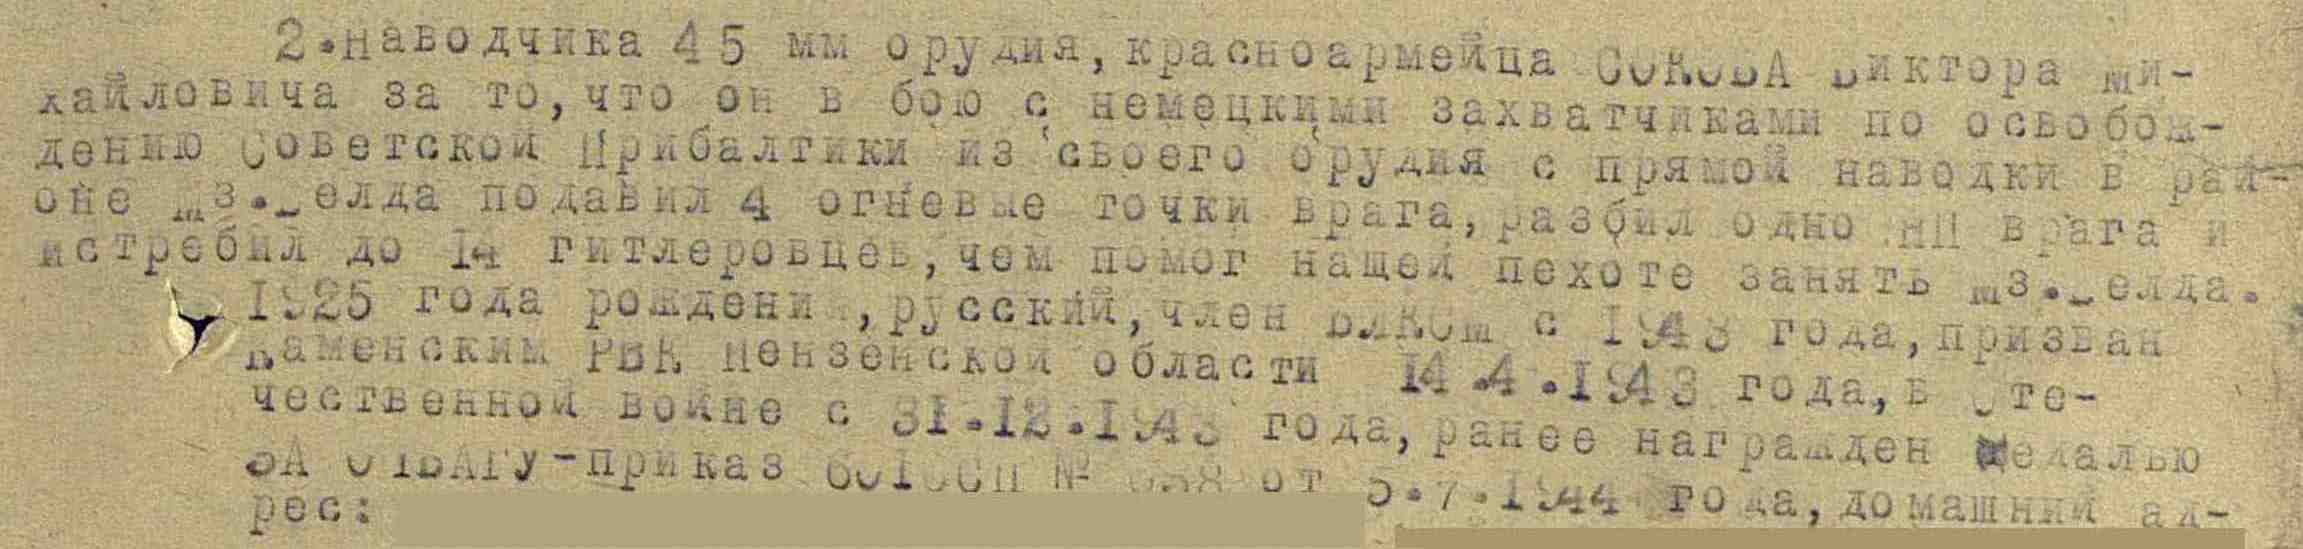 2.наводчика 45 мм орудия,красноармейца СОКОВА Виктора Ми-
хайловича за то,что он в бою с немецкими захватчиками по освобож-
дению Советской Прибалтики из своего орудия с прямой наводки в рай-
оне подавил 4 огневые точки врага,разбил одно НП врага и
истребил до 14 гитлеровцев,чем помог нашей пехоте занять
1925 года рождени ,русский,член ВЛКСМ с 1943 года,призван
Каменским РВК Пензенской области 14.4.1943 года,в Оте-
чественной войне с 31.12.1943 года,ранее награжден медалью
ЗА ОТВАГУ-приказ № от 5.7.1944 года,домашний ад-
рес: